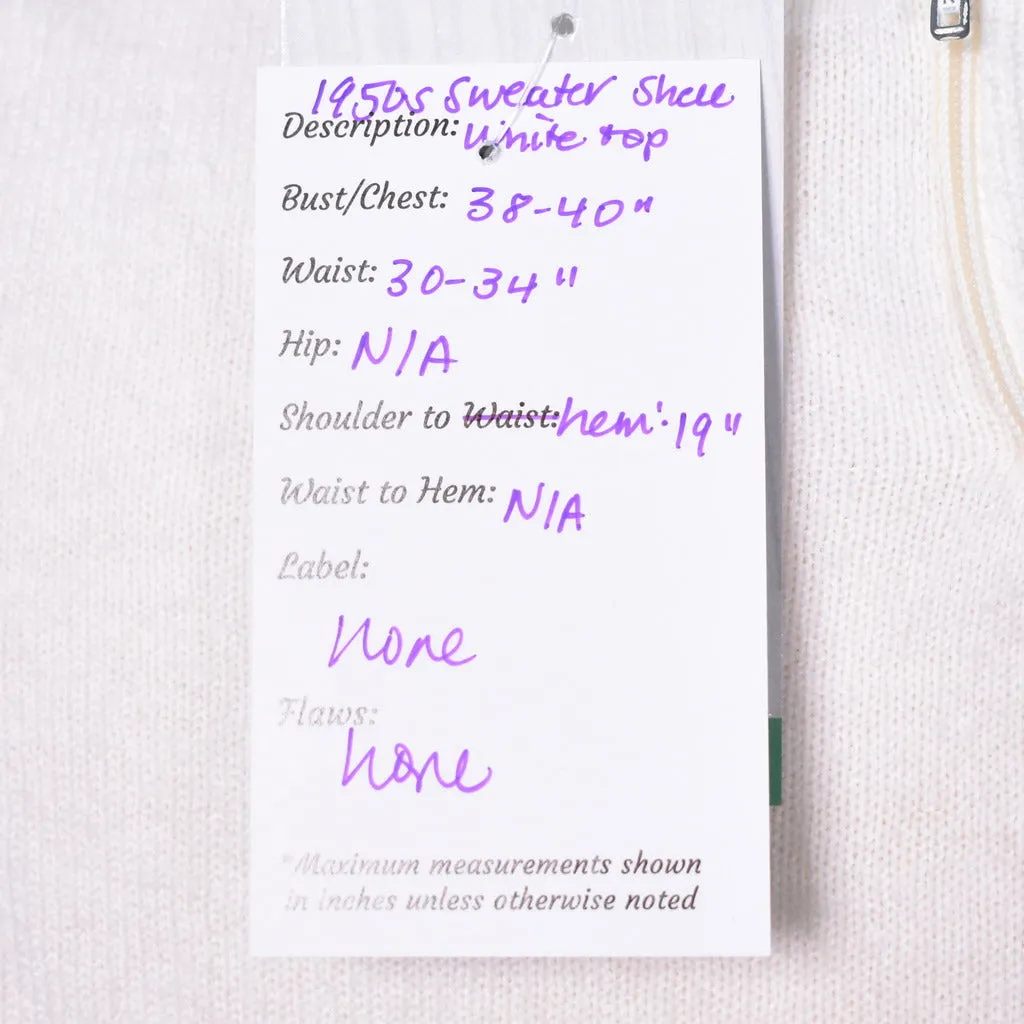 1950s Sweater Shell
Description: White top
Bust/Chest: 38-40"
Waist: 30-34"
Hip: N/A
Shoulder to Waist: hem: 19"
Waist to Hem: N/A
Label:
None
Flaws:
None
*Maximum measurements shown
in inches unless otherwise noted